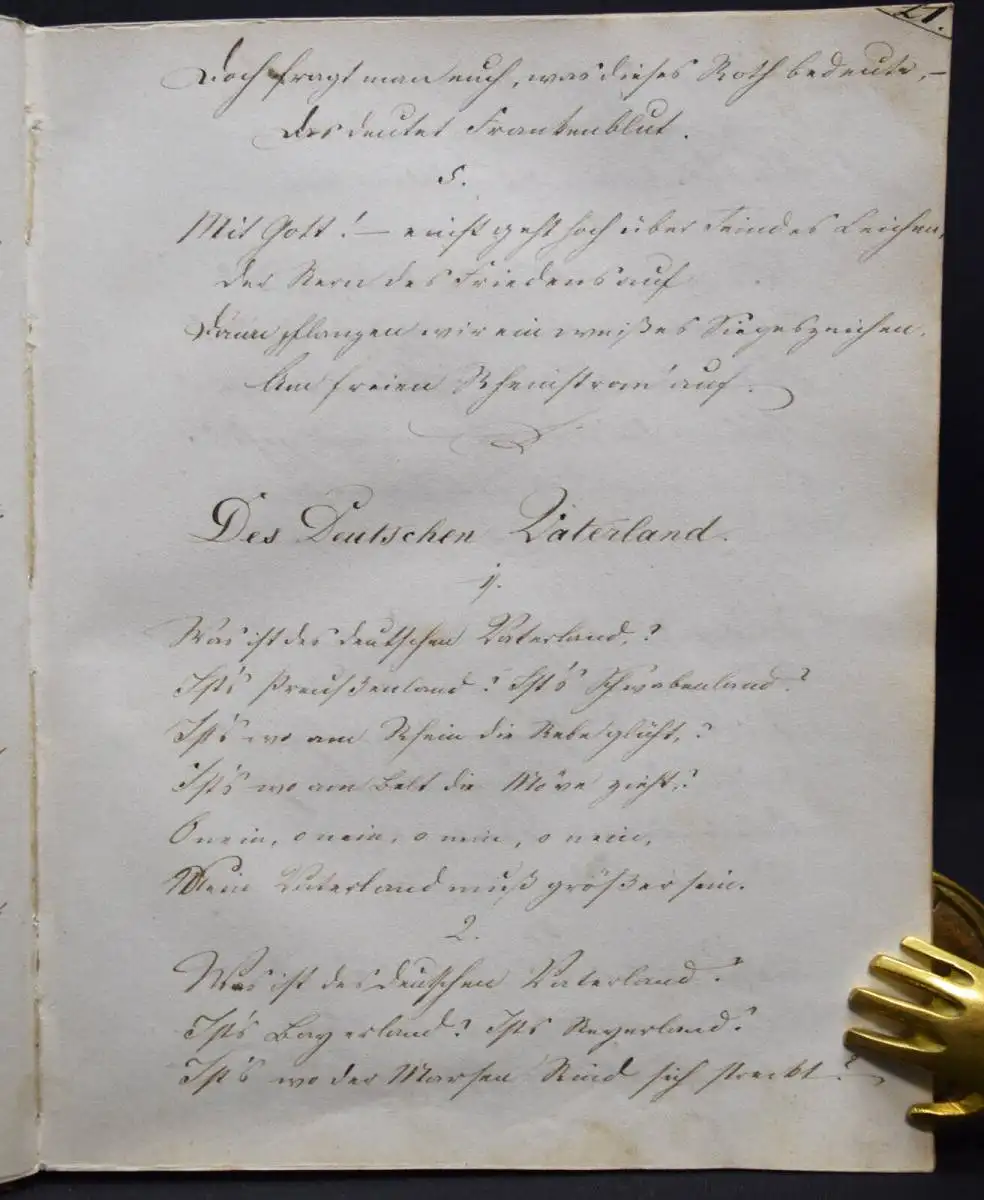 21.
Doch fragt man euch, was dieses Roth bedeute, –
Das deutet Frankenblut.
5.
Mit Gott! – einst geht hoch über Feindes Leichen,
Der Stern des Friedens auf
Dann pflanzen wir ein weißes Siegeszeichen.
Am freien Rheinstrom auf.
Des Deutschen Vaterland.
1.
Was ist des deutschen Vaterland,?
Ist's Preußenland? Ist's Schwabenland?
Ist's wo am Rhein die Rebe glüht,?
Ist's wo am Belt die Möve zieht,?
O nein, o nein, o nein, o nein,
Mein Vaterland muß größer sein.
2.
Was ist des deutschen Vaterland?
Ist's Bayerland? Ists Steyerland?
Ist's wo der Marsen Rind sich streckt?